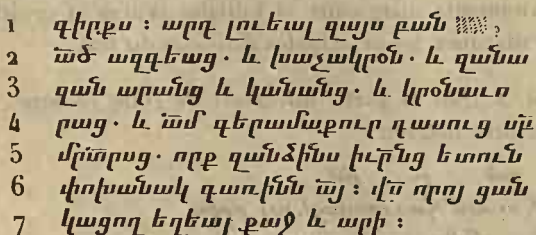 1 գիրքս : արդ լուեալ զայս բան
2 ա՟ծ ազգեաց · և խաչակրօն · և զանա
3 զան արանց և կանանց · և կրօնաւո
4 րաց · և ա՟մ գերամաքուր դասուց սբ՟
5 մրտրսց · որք զանձինս իւր՟նց ետուն
6 փոխանակ գառինն ա՟յ : վ՟ս որոյ ցան
7 կացող եղեալ քաջ և արի :